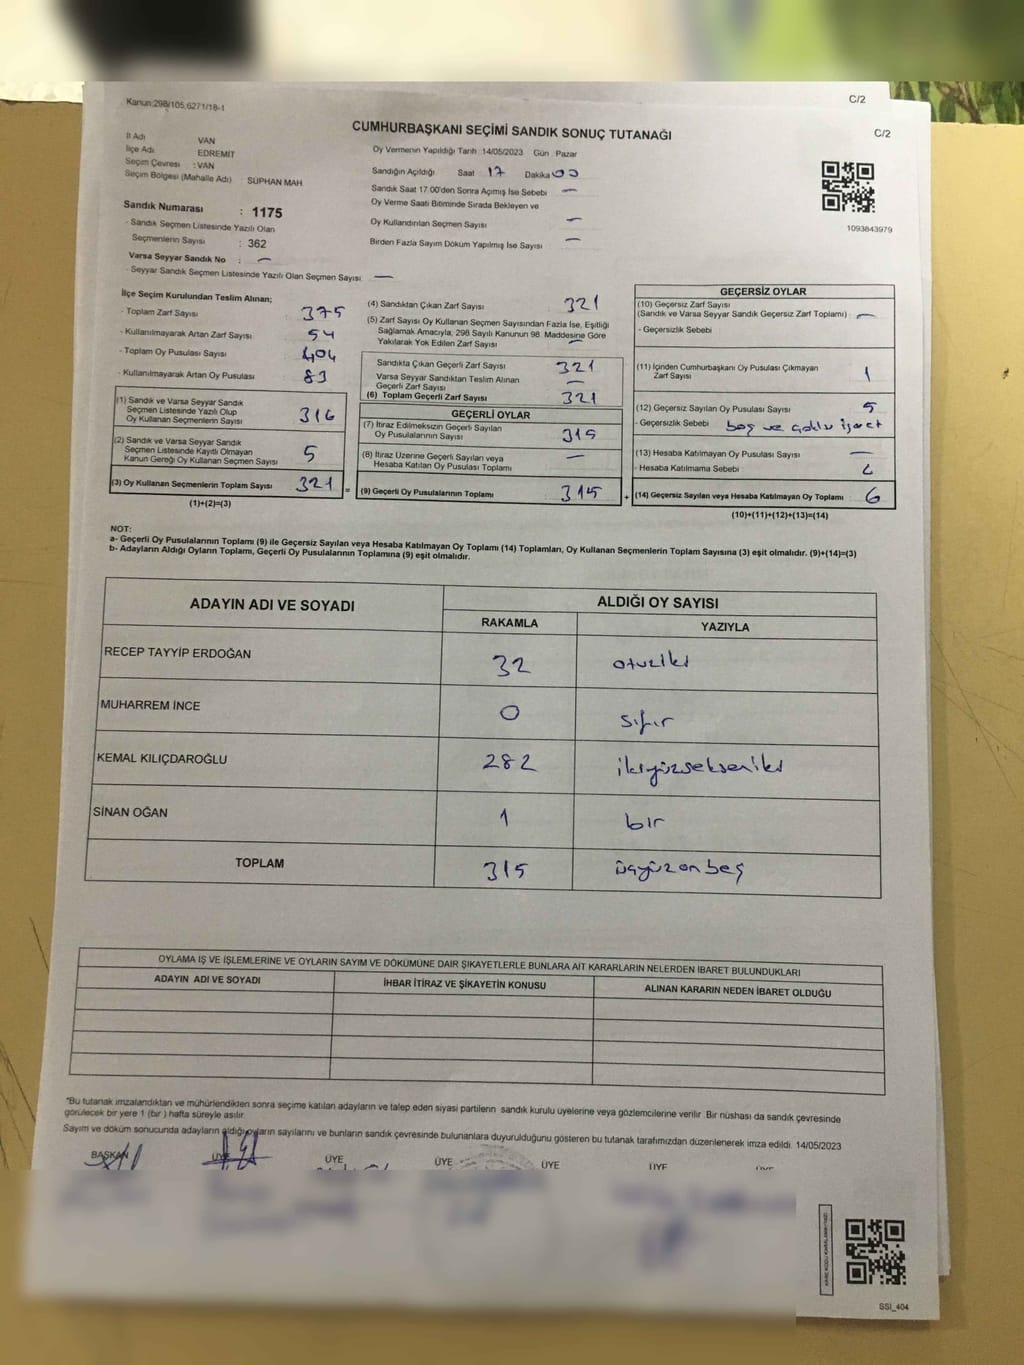 Kanun:298/105,6271/18-1
C/2
C/2
CUMHURBAŞKANI SEÇİMİ SANDIK SONUÇ TUTANAĞI
İl Adı VAN
İlçe Adı EDREMİT
Seçim Çevresi : VAN
Seçim Bölgesi (Mahalle Adı) : SÜPHAN MAH
Oy Vermenin Yapıldığı Tarih :14/05/2023 Gün : Pazar
Sandığın Açıldığı Saat 17 Dakika 00
Sandık Saat 17:00'den Sonra Açımış İse Sebebi —
Oy Verme Saati Bitiminde Sırada Bekleyen ve
Oy Kullandırılan Seçmen Sayısı —
Birden Fazla Sayım Döküm Yapılmış İse Sayısı —
1093843979
Sandık Numarası : 1175
- Sandık Seçmen Listesinde Yazılı Olan
Seçmenlerin Sayısı : 362
Varsa Seyyar Sandık No : —
- Seyyar Sandık Seçmen Listesinde Yazılı Olan Seçmen Sayısı: —
İlçe Seçim Kurulundan Teslim Alınan;
- Toplam Zarf Sayısı 375
- Kullanılmayarak Artan Zarf Sayısı 54
- Toplam Oy Pusulası Sayısı 404
- Kullanılmayarak Artan Oy Pusulası 83
(1) Sandık ve Varsa Seyyar Sandık
Seçmen Listesinde Yazılı Olup
Oy Kullanan Seçmenlerin Sayısı 316
(2) Sandık ve Varsa Seyyar Sandık
Seçmen Listesinde Kayıtlı Olmayan
Kanun Gereği Oy Kullanan Seçmen Sayısı 5
(3) Oy Kullanan Seçmenlerin Toplam Sayısı 321
(1)+(2)=(3)
(4) Sandıktan Çıkan Zarf Sayısı 321
(5) Zarf Sayısı Oy Kullanan Seçmen Sayısından Fazla İse, Eşitliği
Sağlamak Amacıyla, 298 Sayılı Kanunun 98. Maddesine Göre
Yakılarak Yok Edilen Zarf Sayısı —
Sandıkta Çıkan Geçerli Zarf Sayısı 321
Varsa Seyyar Sandıktan Teslim Alınan
Geçerli Zarf Sayısı —
(6) Toplam Geçerli Zarf Sayısı 321
GEÇERLİ OYLAR
(7) İtiraz Edilmeksizin Geçerli Sayılan
Oy Pusulalarının Sayısı 315
(8) İtiraz Üzerine Geçerli Sayılan veya
Hesaba Katılan Oy Pusulası Toplamı —
= (9) Geçerli Oy Pusulalarının Toplamı 315
GEÇERSİZ OYLAR
(10) Geçersiz Zarf Sayısı
(Sandık ve Varsa Seyyar Sandık Geçersiz Zarf Toplamı) : —
- Geçersizlik Sebebi
(11) İçinden Cumhurbaşkanı Oy Pusulası Çıkmayan
Zarf Sayısı 1
(12) Geçersiz Sayılan Oy Pusulası Sayısı 5
- Geçersizlik Sebebi boş ve çoklu işaret
(13) Hesaba Katılmayan Oy Pusulası Sayısı —
- Hesaba Katılmama Sebebi
+ (14) Geçersiz Sayılan veya Hesaba Katılmayan Oy Toplamı 6
(10)+(11)+(12)+(13)=(14)
NOT:
a- Geçerli Oy Pusulalarının Toplamı (9) ile Geçersiz Sayılan veya Hesaba Katılmayan Oy Toplamı (14) Toplamları, Oy Kullanan Seçmenlerin Toplam Sayısına (3) eşit olmalıdır. (9)+(14)=(3)
b- Adayların Aldığı Oyların Toplamı, Geçerli Oy Pusulalarının Toplamına (9) eşit olmalıdır.
ADAYIN ADI VE SOYADI
ALDIĞI OY SAYISI
RAKAMLA YAZIYLA
RECEP TAYYİP ERDOĞAN 32 otuziki
MUHARREM İNCE 0 sıfır
KEMAL KILIÇDAROĞLU 282 ikiyüzsekseniki
SİNAN OĞAN 1 bir
TOPLAM 315 üçyüzonbeş
OYLAMA İŞ VE İŞLEMLERİNE VE OYLARIN SAYIM VE DÖKÜMÜNE DAİR ŞİKAYETLERLE BUNLARA AİT KARARLARIN NELERDEN İBARET BULUNDUKLARI
ADAYIN ADI VE SOYADI İHBAR İTİRAZ VE ŞİKAYETİN KONUSU ALINAN KARARIN NEDEN İBARET OLDUĞU
"Bu tutanak imzalandıktan ve mühürlendikten sonra seçime katılan adayların ve talep eden siyasi partilerin sandık kurulu üyelerine veya gözlemcilerine verilir. Bir nüshası da sandık çevresinde
görülecek bir yere 1 (bir ) hafta süreyle asılır.
Sayım ve döküm sonucunda adayların aldığı oyların sayılarını ve bunların sandık çevresinde bulunanlara duyurulduğunu gösteren bu tutanak tarafımızdan düzenlenerek imza edildi. 14/05/2023
BAŞKAN ÜYE ÜYE ÜYE ÜYE ÜYE ÜYE
SSİ_404